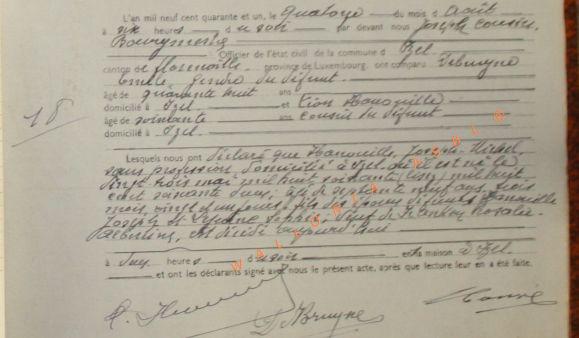 L'an mil neuf cent quarante et un, le Quatorze du mois d'Août
à six heures du soir par devant nous Joseph Cousin,
Bourgmestre Officier de l'état civil de la commune d'
canton de Florenville province de Luxembourg, ont comparu Debruyne
Emile, gendre du défunt
âgé de quarante huit ans
domicilié à Izel et Léon Hanouille
âgé de soixante ans cousin du défunt
domicilié à Izel
18
Lesquels nous ont déclaré que Hanouille, Joseph
sans profession, domicilié à Izel où il est né le
vingt trois mai mil huit
cent soixante deux, âgé de septante neuf ans,
mois, vingt et un jours, fils des époux défunts Hanouille
Joseph et Sophie veuf de Rosalie
est décédé aujourd'hui
à deux heures du soir en sa maison d'Izel
et ont les déclarants signé avec nous le présent acte, après que lecture leur en a été faite.
WALLONIA 2018
DeBruyne